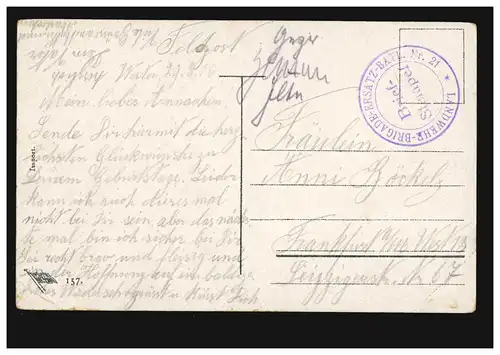 Feldpost
Mein liebes Annachen.
Sende Dir hiermit die herz-
lichsten Glückwünsche zu
Deinem Geburtstage. Leider
kann ich auch dieses mal
nicht bei Dir sein, aber das näch-
ste mal bin ich sicher bei Dir
Sei recht brav und fleißig und
in der Hoffnung auf ein baldi-
ges Wiedersehn grüsst u küsst Dich
LANDWEHR-BRIGADE-ERSATZ-BATL. Nr. 21 *
Brief
Stempel
Fräulein
Anni Böckels
Frankfurt a/M West 13
Leipzigerstr. № 67
157.